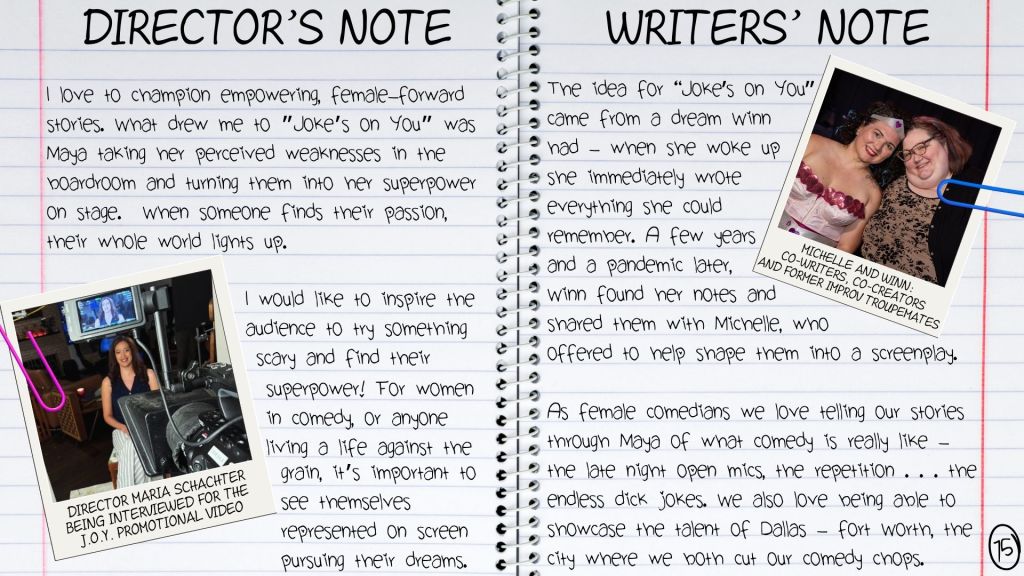 DIRECTOR'S NOTE
I love to champion empowering, female-forward
stories. What drew me to "Joke's on You" was
Maya taking her perceived weaknesses in the
boardroom and turning them into her superpower
on stage. When someone finds their passion,
their whole world lights up.
I would like to inspire the
audience to try something
scary and find their
superpower! For women
in comedy, or anyone
living a life against the
grain, it's important to
see themselves
represented on screen
pursuing their dreams.
DIRECTOR MARIA SCHACHTER
BEING INTERVIEWED FOR THE
J.O.Y. PROMOTIONAL VIDEO
WRITERS' NOTE
The idea for "Joke's on You"
came from a dream Winn
had - when she woke up
she immediately wrote
everything she could
remember. A few years
and a pandemic later,
Winn found her notes and
shared them with Michelle, who
offered to help shape them into a screenplay.
MICHELLE AND WINN:
CO-WRITERS, CO-CREATORS
AND FORMER IMPROV TROUPEMATES
As female comedians we love telling our stories
through Maya of what comedy is really like -
the late night open mics, the repetition . . . the
endless dick jokes. We also love being able to
showcase the talent of Dallas - Fort Worth, the
city where we both cut our comedy chops.
15